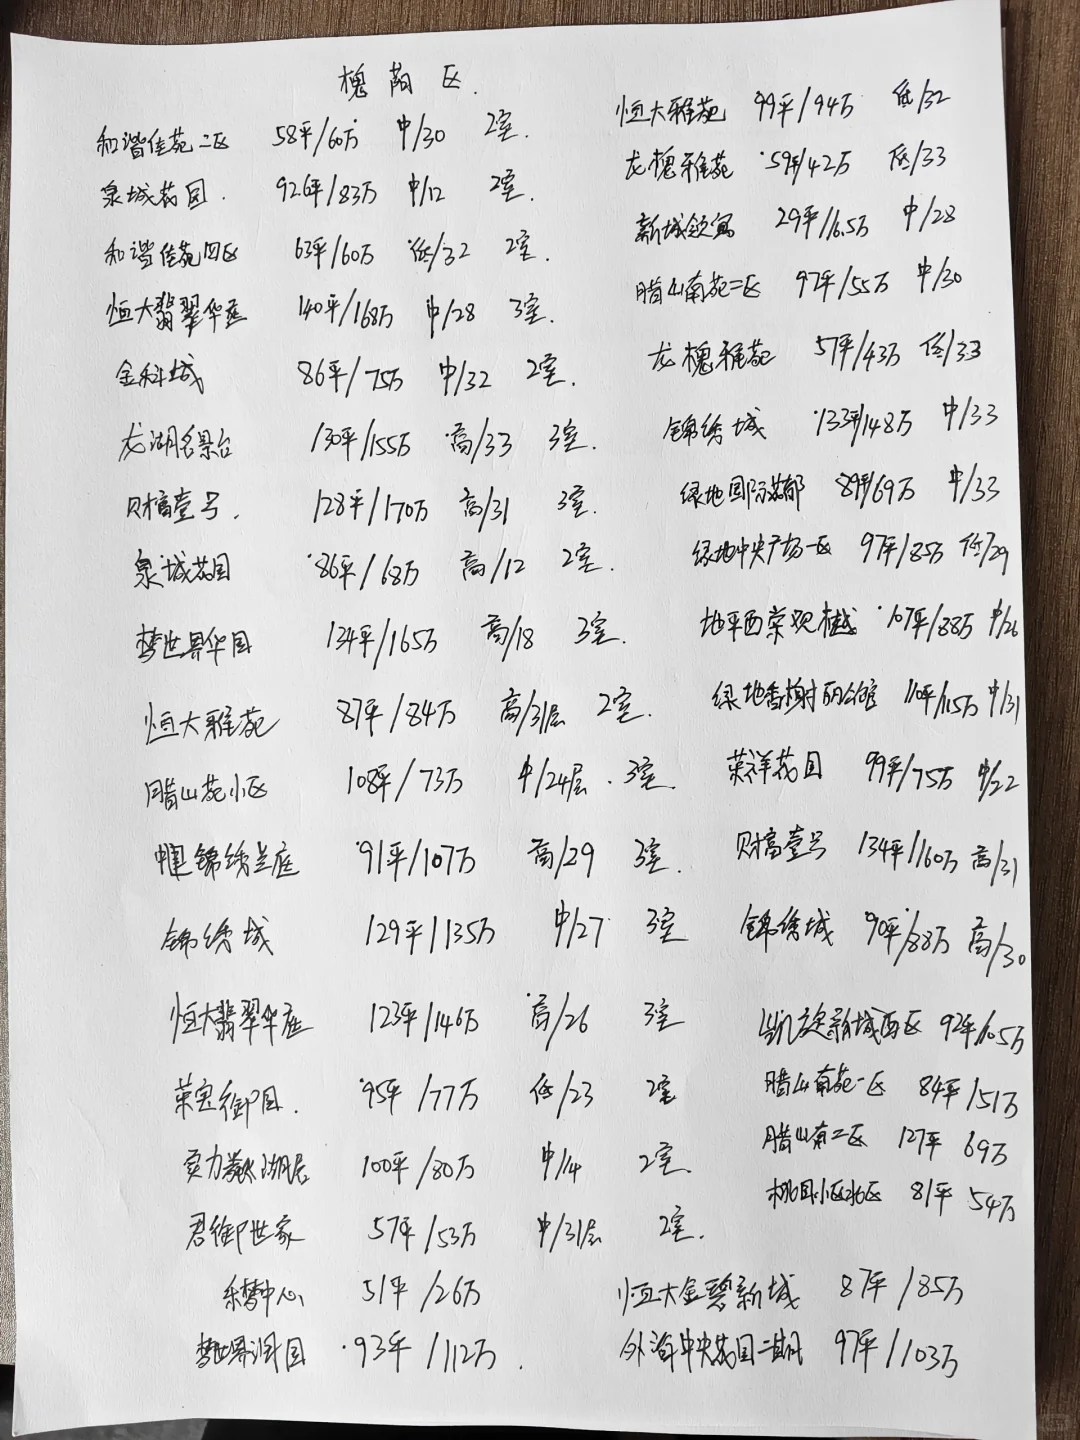 槐荫区.
和谐佳苑二区 58平/60万 中/30 2室.
泉城花园. 92.6平/83万 中/12 2室.
和谐佳苑四区 63平/60万 低/32 2室.
恒大翡翠华庭 140平/168万 中/28 3室.
金科城 86平/75万 中/32 2室.
龙湖名景台 130平/155万 高/33 3室.
财富壹号. 128平/170万 高/31 3室.
泉城花园 86平/68万 高/12 2室.
梦世界华园 134平/165万 高/18 3室.
恒大雅苑 87平/84万 高/31层 2室.
腊山苑小区 108平/73万 中/24层. 3室.
中建锦绣兰庭 91平/107万 高/29 3室.
锦绣城 129平/135万 中/27 3室
恒大翡翠华庭 123平/146万 高/26 3室
莱宝御园. 95平/77万 低/23 2室
实力 湖居 100平/80万 中/4 2室.
君御世家 57平/53万 中/31层 2室.
乐梦中心 51平/26万
梦世界润园 93平/112万.
恒大雅苑 99平/94万 低/32
龙槐雅苑 59平/42万 低/33
新城铂寓 29平/16.5万 中/28
腊山南苑二区 97平/55万 中/30
龙槐雅苑 57平/43万 低/33
锦绣城 133平/148万 中/33
绿地国际花都 89平/69万 中/33
绿地中央广场一区 97平/85万 低/29
地平西棠观樾 107平/88万 中/26
绿地香榭丽公馆 110平/115万 中/31
莱祥花园 99平/75万 中/22
财富壹号 134平/160万 高/31
锦绣城 90平/88万 高/30
凯旋新城西区 92平/105万
腊山南苑一区 84平/51万
腊山南二区 127平 69万
桃园小区北区 81平 54万
恒大金碧新城 87平/85万
外海中央花园二期 97平/103万